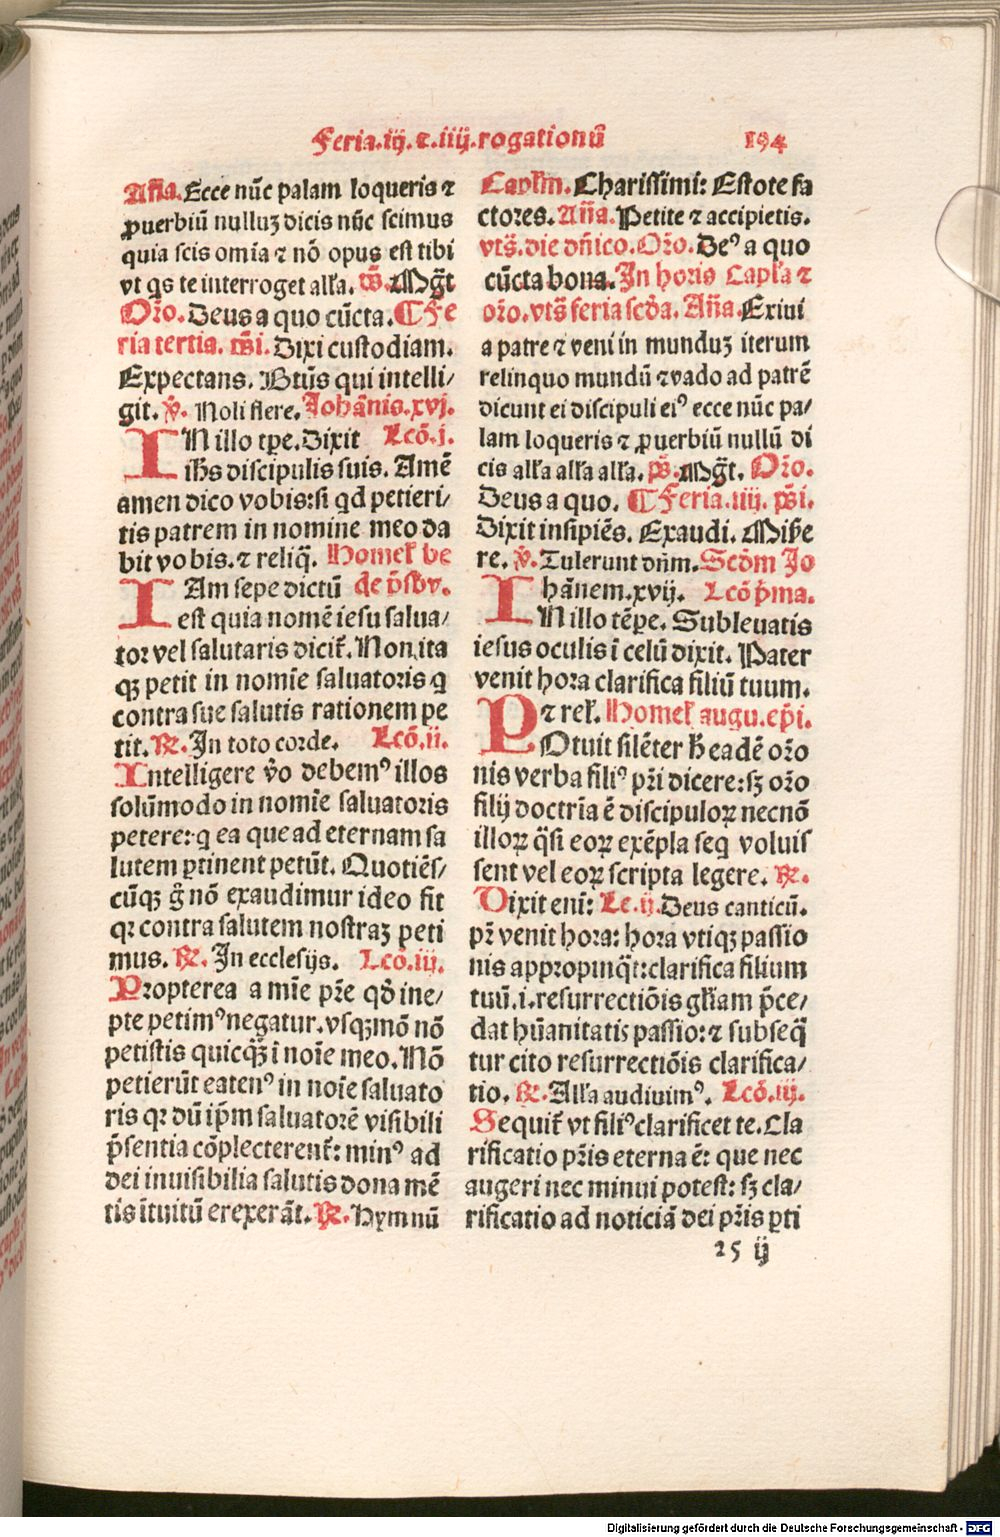 Feria.iij.⁊.iiij.rogationū 194
Añа.Ecce nūc palam loqueris ⁊
ꝓuerbiū nulluꝫ dicis nūc scimus
quia scis omīa ⁊ nō opus est tibi
vt qs te interroget alła. p̄s.Mḡt
Oꝛō.Deus a quo cūcta. ¶Fe
ria tertia. p̄si.Dixi custodiam.
Expectans. Btūs qui intelli/
git. v̄. Noli flere. Johānis.xvj.
IN illo tꝑe.Dixit Lcō.j.
ihs̄ discipulis suis. Amē
amen dico vobis:si qd petieri/
tis patrem in nomine meo da
bit vobis.⁊ reliq̄. Homeł be
IAm sepe dictū de p̄sbv.
est quia nomē iesu salua/
toꝛ vel salutaris dicit̄. Non ita
qꝫ petit in nomīe saluatoꝛis q
contra sue salutis rationem pe
tit. ℟. In toto coꝛde. Lcō.ii.
Intelligere v̄o debemꝰ illos
solūmodo in nomīe saluatoꝛis
petere:q ea que ad eternam sa
lutem ꝑtinent petūt. Quotiēs/
cūqꝫ g̊ nō exaudimur ideo fit
qꝛ contra salutem nostraꝫ peti
mus. ℟. In ecclesijs. Lcō.iij.
Propterea a mīe pr̄e qd̄ ine/
pte petimꝰ negatur.vsqꝫmō nō
petistis quicqꝫ̄ ī noīe meo. Nō
petierūt eatenꝰ in noīe saluato
ris qꝛ dū ip̄m saluatoꝛē visibili
p̄sentia cōplecterent̄: minꝰ ad
dei inuisibilia salutis dona mē
tis ītuitū erexerāt. ℟. Hymnū
Capłm. Charissimi: Estote fa
ctores. Añа. Petite ⁊ accipietis.
vts̄. die dn̄ico. Oꝛō. Deꝰ a quo
cūcta bona. In hoꝛis Capła ⁊
oꝛō. vts̄ feria scd̄a. Añа.Exiui
a patre ⁊ veni in munduꝫ iterum
relinquo mundū ⁊vado ad patrē
dicunt ei discipuli eiꝰ ecce nūc pa/
lam loqueris ⁊ ꝓuerbiū nullū di
cis alła alła alła. p̄s.Mḡt. Oꝛō.
Deus a quo. ¶Feria.iiij. p̄si.
Dixit insipiēs. Exaudi. Mise
re. v̄. Tulerunt dn̄m. Scd̄m Jo
hānem.xvij. Lcō p̄ma.
IN illo tēꝑe. Subleuatis
iesus oculis ī celū dixit. Pater
venit hoꝛa clarifica filiū tuum.
⁊ reł. Homeł augu.ep̄i.
POtuit silēter h̄ eadē oꝛō
nis verba filiꝰ pr̄i dicere:sꝫ oꝛō
filij doctrīa ē discipuloꝝ necnō
illoꝝ q̄si eoꝝ exēpla seq voluis
sent vel eoꝝ scripta legere. ℟.
Dixit eni: Le.ij.Deus canticū.
pr̄ venit hoꝛa: hoꝛa vtiqꝫ passio
nis appropinq̄t:clarifica filium
tuū.i.resurrectiōis głiam p̄ce/
dat hūanitatis passio:⁊ subseq̄
tur cito resurrectiōis clarifica/
tio. ℟.Alła audiuimꝰ. Lcō.iij.
Sequit̄ vt filiꝰ clarificet te.Cla
rificatio pr̄is eterna ē: que nec
augeri nec minui potest: sꝫ cla/
rificatio ad noticiā dei pr̄is ꝑti
25 ij
Digitalisierung gefördert durch die Deutsche Forschungsgemeinschaft - DFG